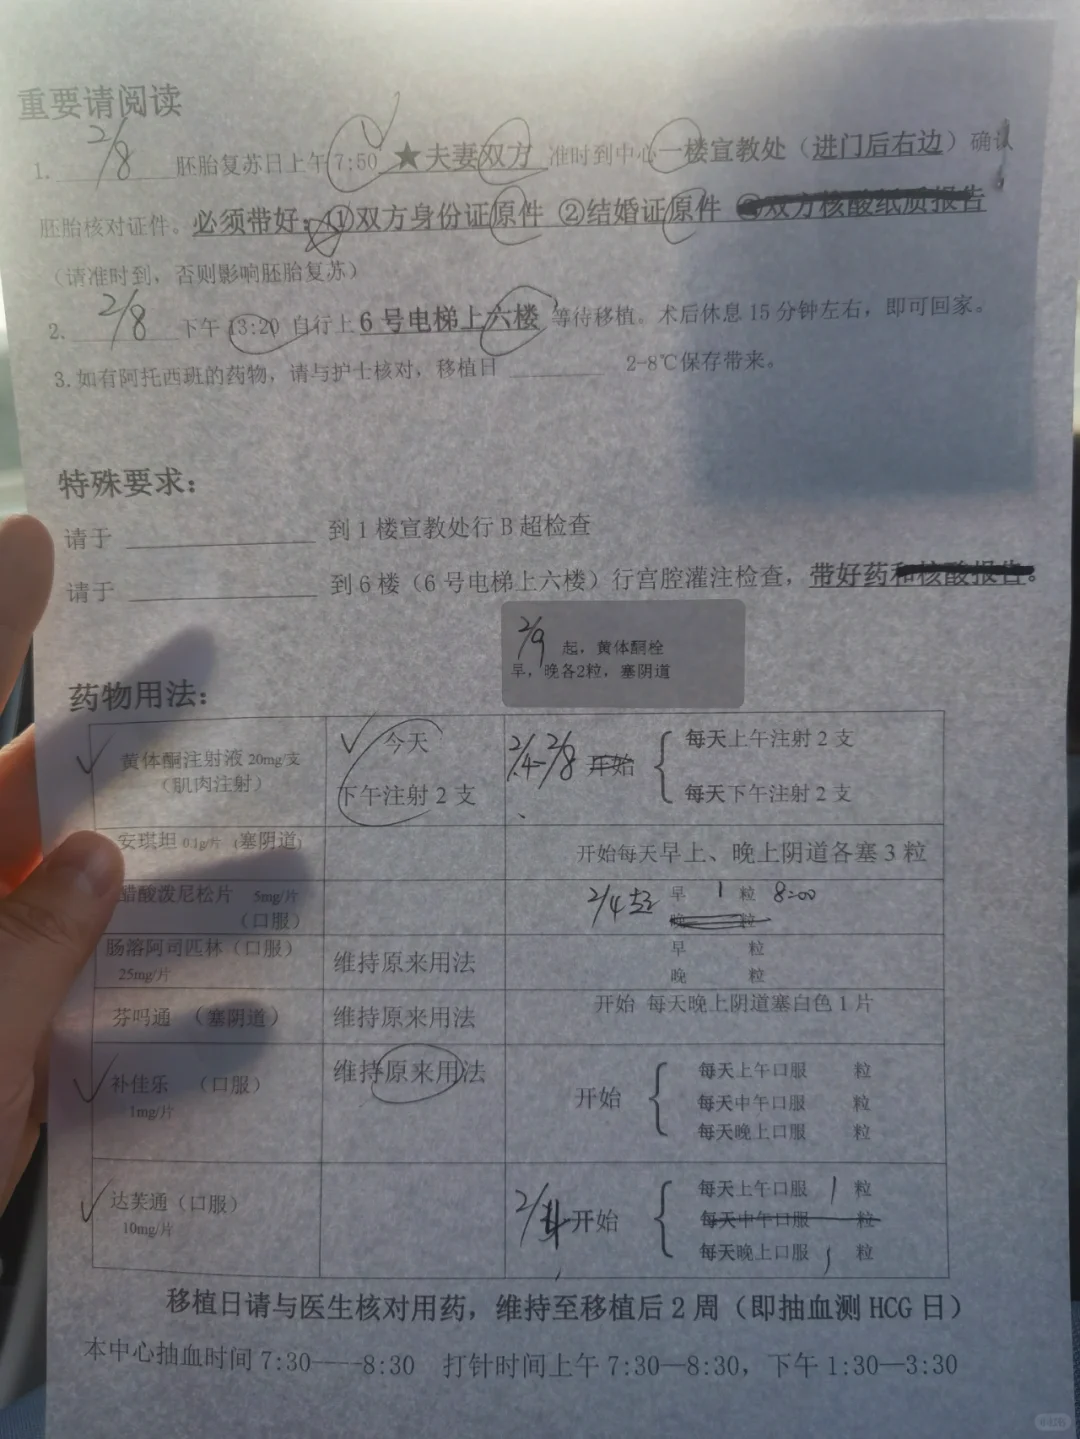 重要请阅读
1. 2/8 胚胎复苏日上午7:50 ★夫妻双方 准时到中心一楼宣教处（进门后右边）确认
胚胎核对证件。必须带好：①双方身份证原件 ②结婚证原件 ③双方核酸纸质报告
（请准时到，否则影响胚胎复苏）
2. 2/8 下午 13:20 自行上 6 号电梯上六楼 等待移植。术后休息 15 分钟左右，即可回家。
3. 如有阿托西班的药物，请与护士核对，移植日 ______ 2-8℃保存带来。
特殊要求：
请于 ______ 到 1 楼宣教处行 B 超检查
请于 ______ 到 6 楼（6 号电梯上六楼）行宫腔灌注检查，带好药和核酸报告。
2/9 起，黄体酮栓
早，晚各2粒，塞阴道
药物用法：
黄体酮注射液 20mg/支
（肌肉注射）
今天
下午注射 2 支
2/4-2/8 开始
每天上午注射 2 支
每天下午注射 2 支
安琪坦 0.1g/片（塞阴道）
开始每天早上、晚上阴道各塞 3 粒
醋酸泼尼松片 5mg/片
（口服）
2/4起 早 1 粒 8:00
晚 粒
肠溶阿司匹林（口服）
25mg/片
维持原来用法
早 粒
晚 粒
芬吗通 （塞阴道）
维持原来用法
开始 每天晚上阴道塞白色 1 片
补佳乐 （口服）
1mg/片
维持原来用法
开始
每天上午口服 粒
每天中午口服 粒
每天晚上口服 粒
达芙通（口服）
10mg/片
2/4开始
每天上午口服 1 粒
每天中午口服 粒
每天晚上口服 1 粒
移植日请与医生核对用药，维持至移植后 2 周（即抽血测 HCG 日）
本中心抽血时间 7:30——8:30 打针时间上午 7:30—8:30，下午 1:30—3:30